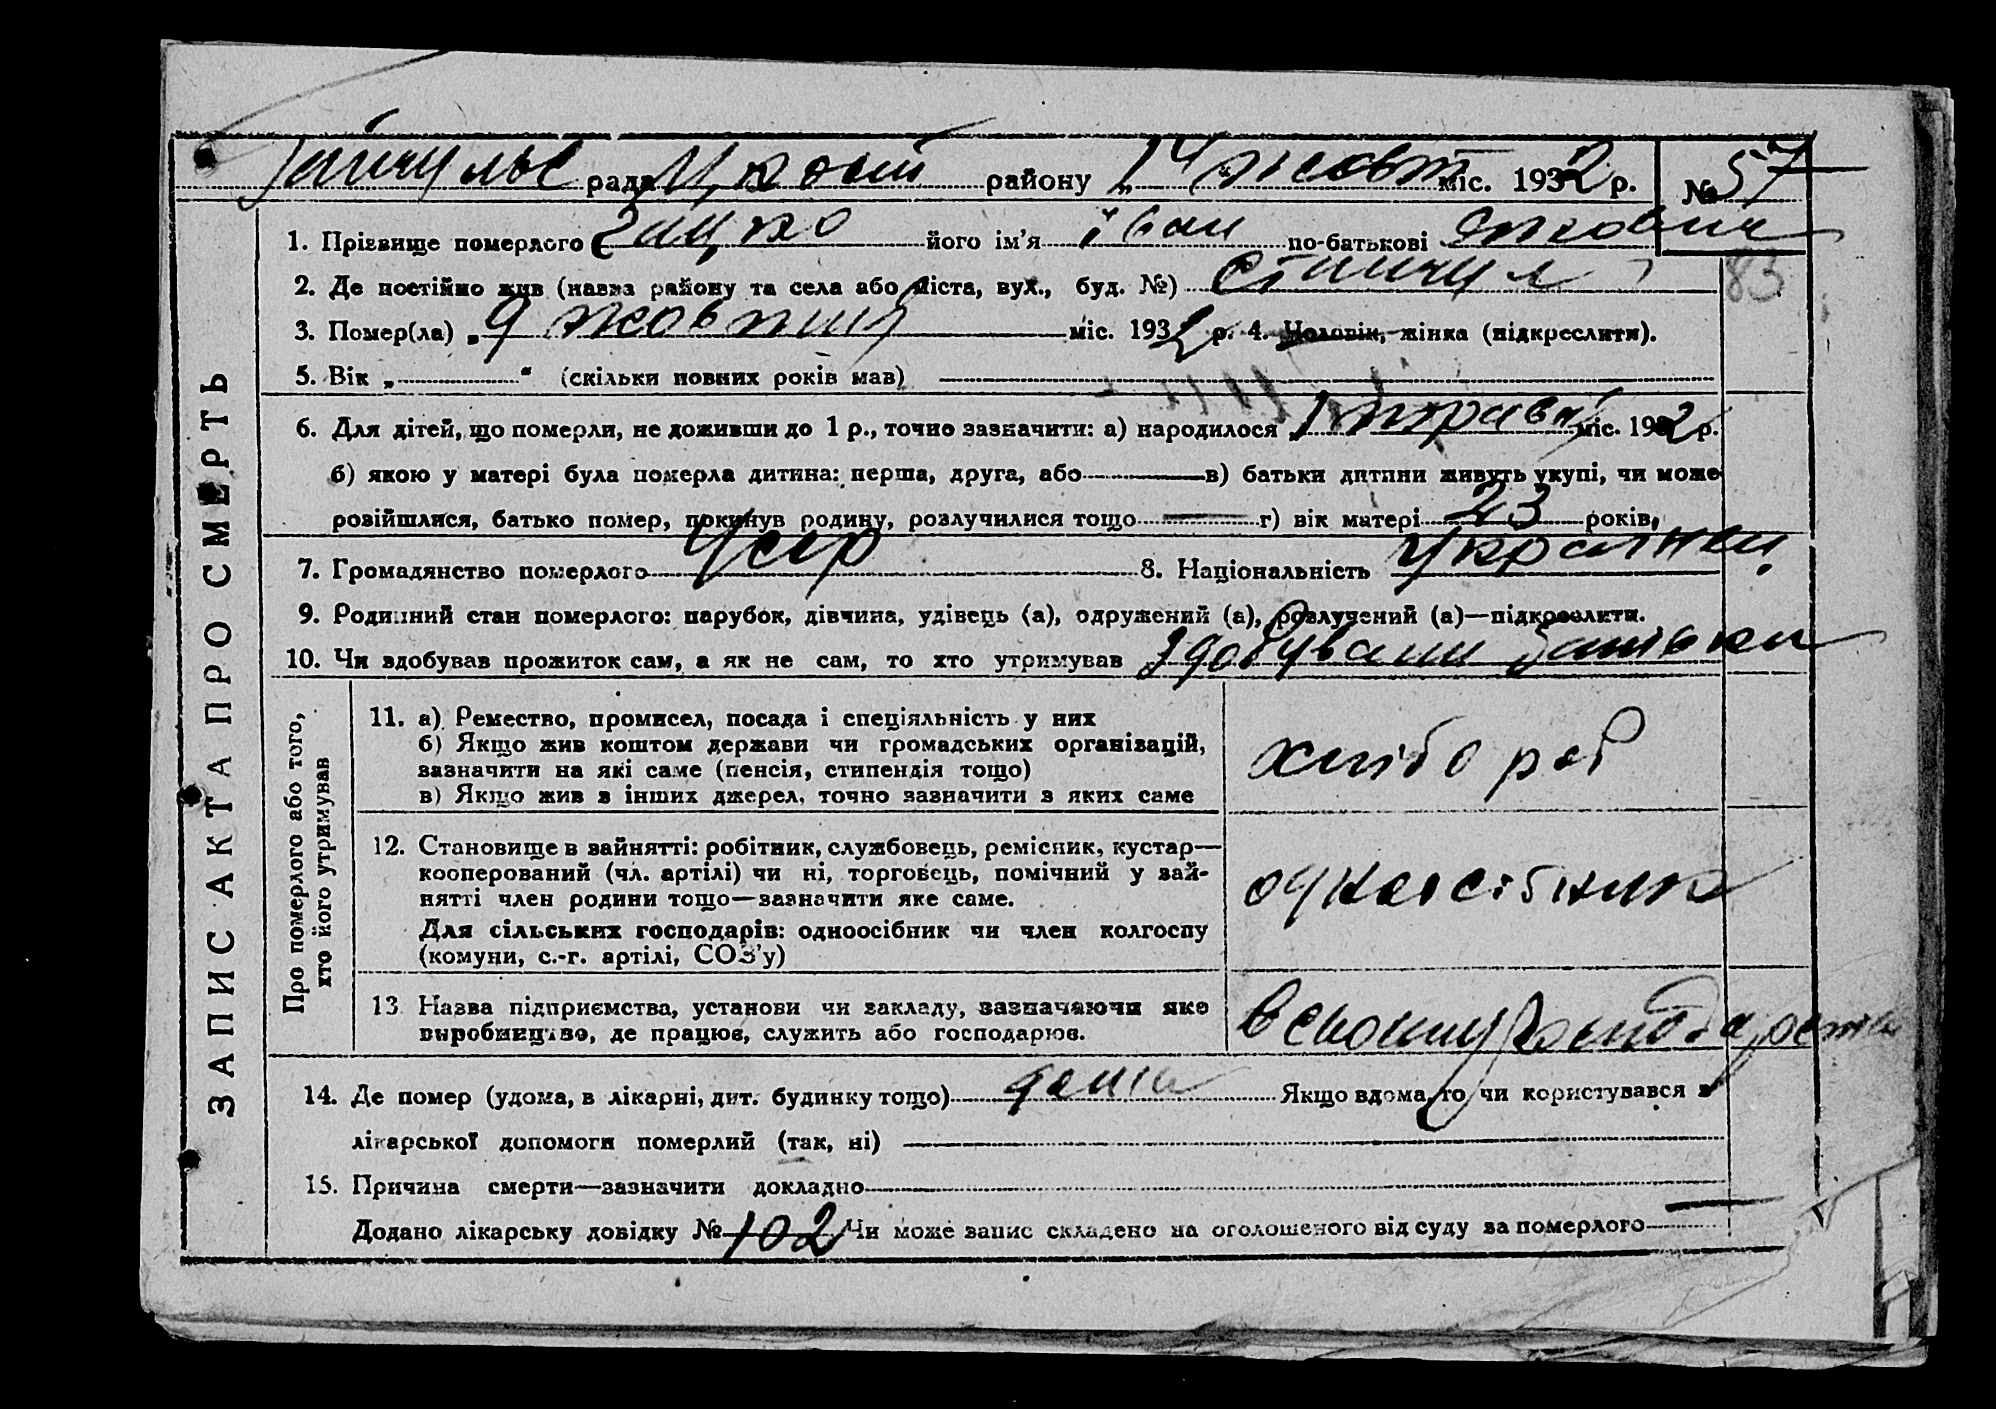 рада району "14" жовт міс. 1932 р. № 57
1. Прізвище померлого Гацко його ім'я Іван по-батькові
83
2. Де постійно жив (назва району та села або міста, вул., буд. №)
3. Помер(ла) „9 жовтня міс. 1932 р. 4. Чоловік, жінка (підкреслити).
5. Вік „ “ (скільки повних років мав)
6. Для дітей, що померли, не доживши до 1 р., точно зазначити: а) народилося 1 травня міс. 1932 р.
б) якою у матері була померла дитина: перша, друга, або в) батьки дитини живуть укупі, чи може
розійшлися, батько помер, покинув родину, розлучилися тощо г) вік матері 23 років.
7. Громадянство померлого Усср 8. Національність Українец
9. Родинний стан померлого: парубок, дівчина, удівець (а), одружений (а), розлучений (а)—підкреслити.
10. Чи здобував прожиток сам, а як не сам, то хто утримував здобували батьки
ЗАПИС АКТА ПРО СМЕРТЬ
Про померлого або того,
хто його утримував
11. а) Ремество, промисел, посада і спеціяльність у них
б) Якщо жив коштом держави чи громадських організацій,
зазначити на які саме (пенсія, стипендія тощо)
в) Якщо жив з інших джерел, точно зазначити з яких саме
хлібороб
12. Становище в зайнятті: робітник, службовець, ремісник, кустар—
кооперований (чл. артілі) чи ні, торговець, помічний у зай-
нятті член родини тощо—зазначити яке саме.
Для сільських господарів: одноосібник чи член колгоспу
(комуни, с.-г. артілі, СОЗ'у)
одноосібник
13. Назва підприємства, установи чи закладу, зазначаючи яке
виробництво, де працює, служить або господарює.
в своему господарстві
14. Де помер (удома, в лікарні, дит. будинку тощо) дома Якщо вдома, то чи користувався з
лікарської допомоги померлий (так, ні)
15. Причина смерти—зазначити докладно
Додано лікарську довідку № 102 Чи може запис складено на оголошеного від суду за померлого